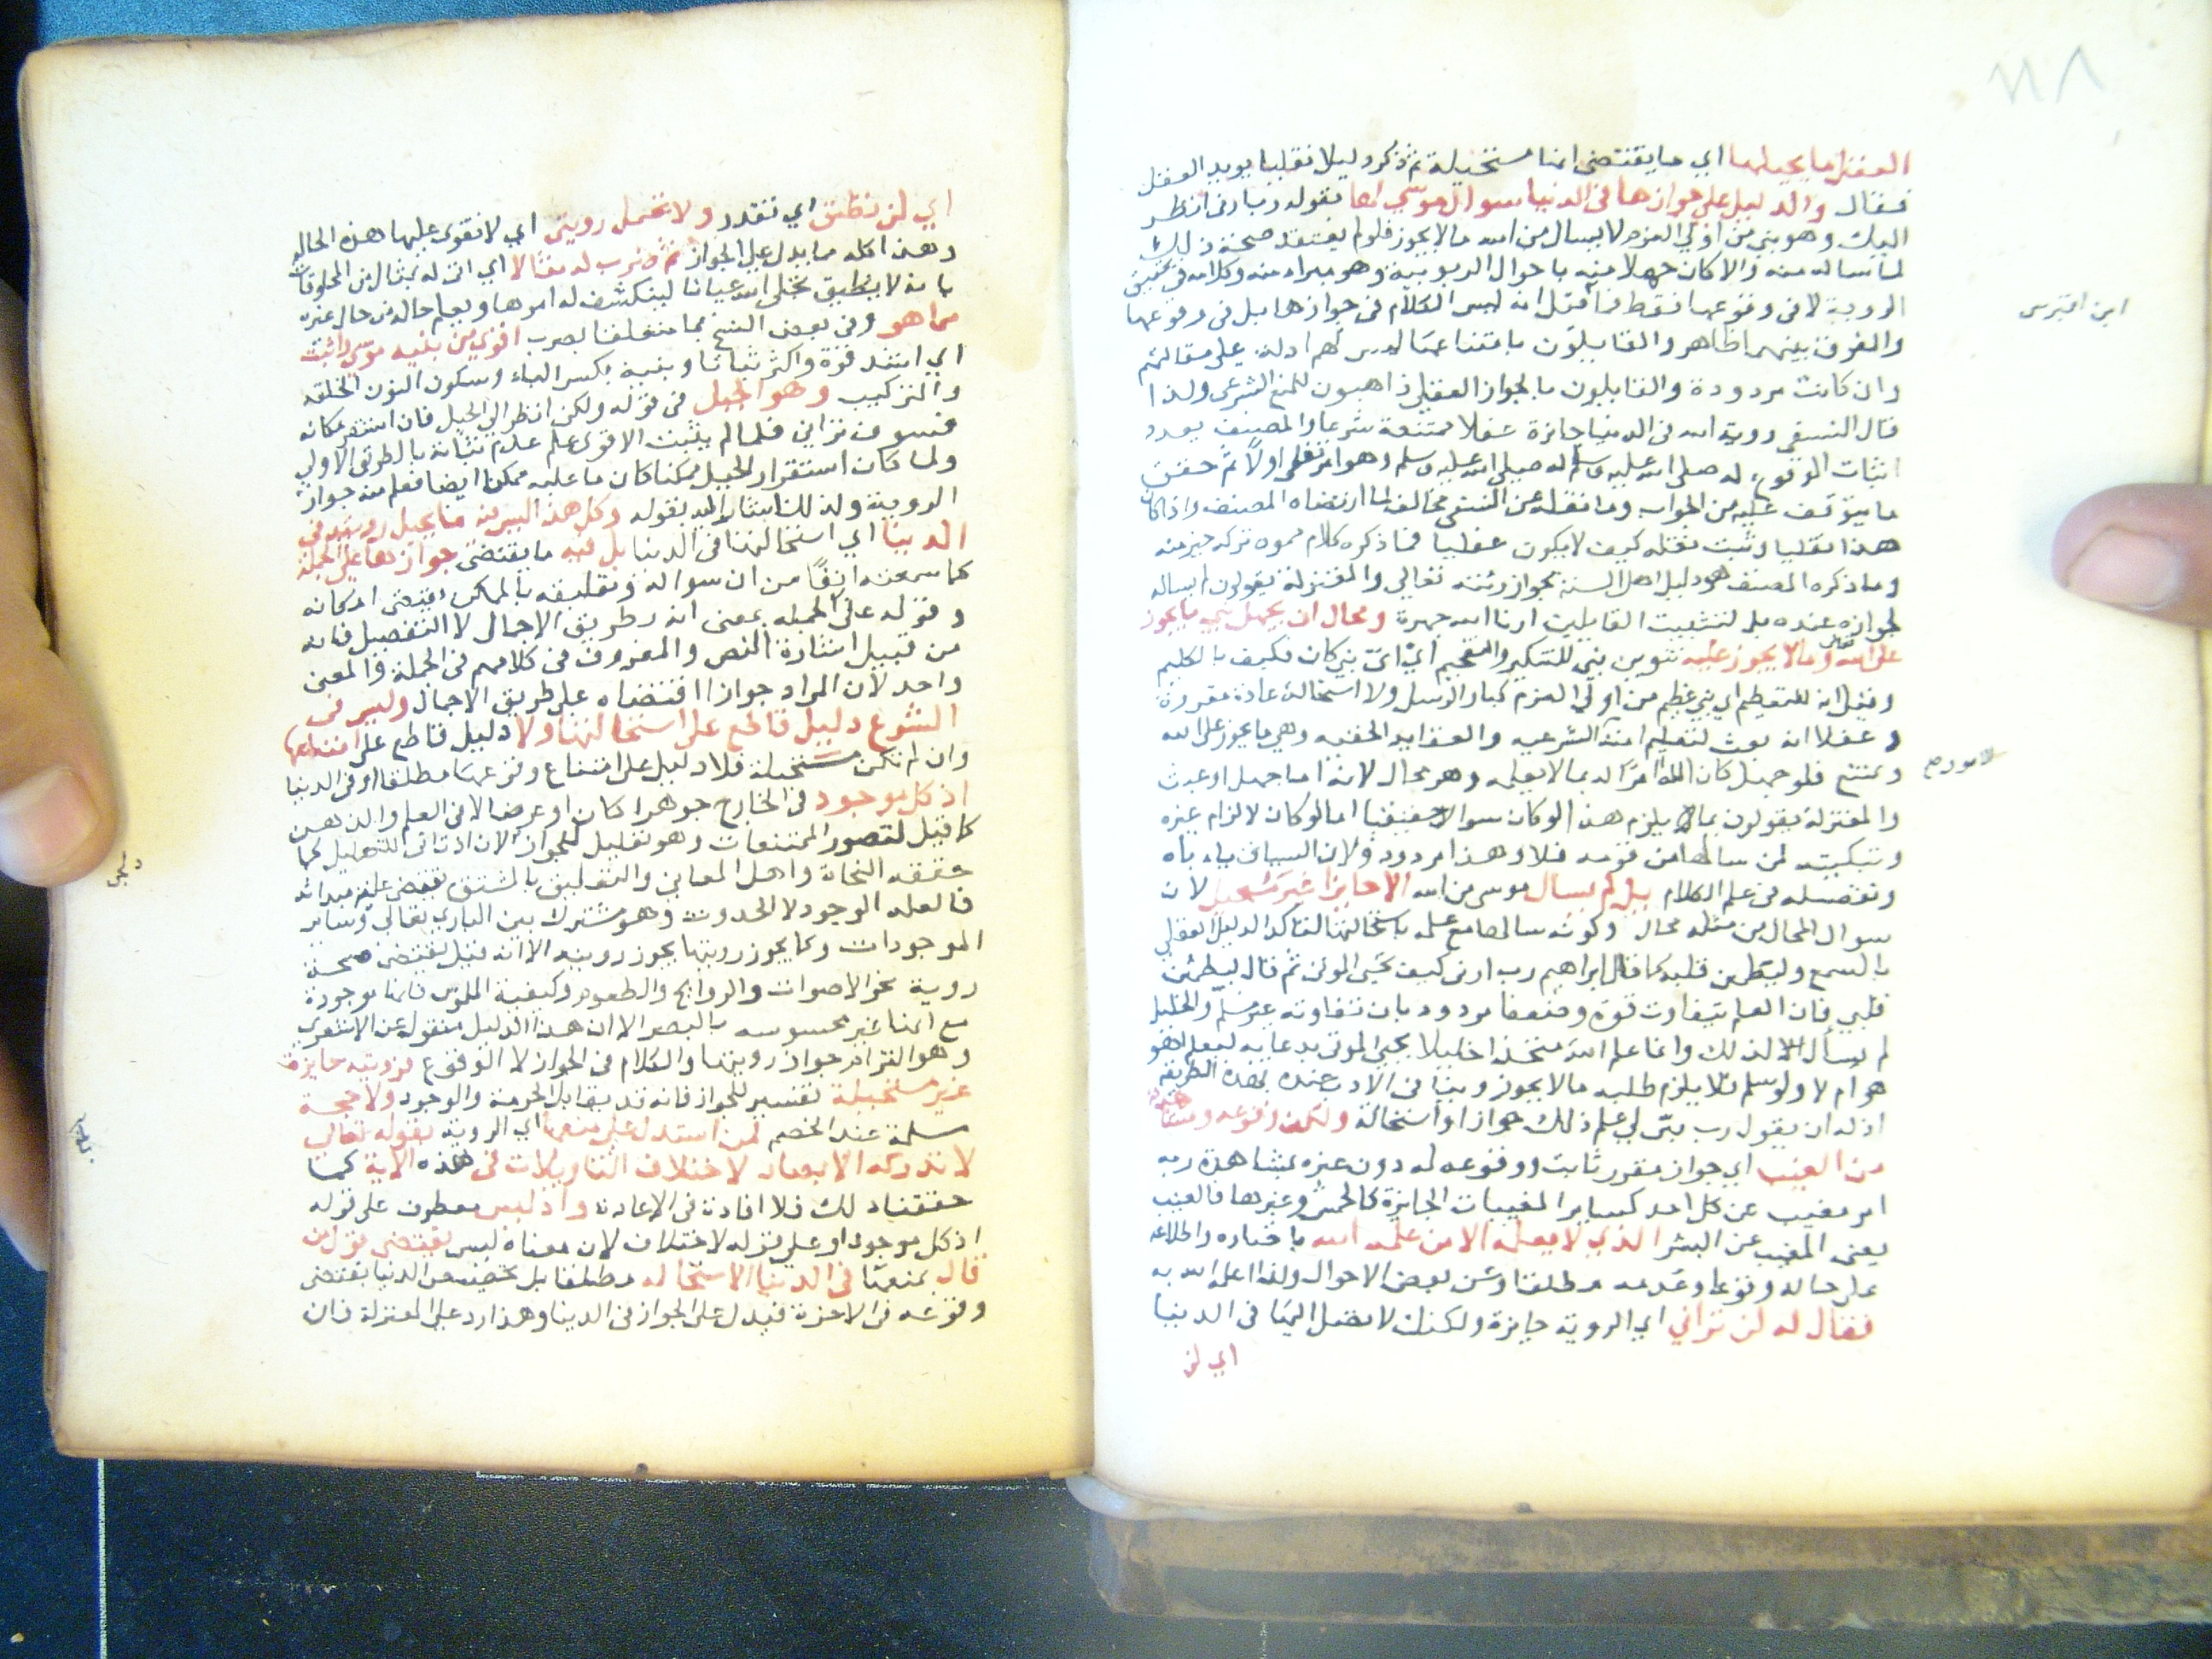 ١١٨
العقل ما يحيلها اي ما يقتضي انها مستحيلة ثم ذكر دليلا نقليا يويد العقل
فقال والدليل علي جوازها في الدنيا سوال موسي لها بقوله رب ارني انظر
اليك وهو نبي من اولي العزم لا يسال من الله ما لا يجوز فلو لم يعتقد صحة ذلك
لما ساله منه والا كان جهلا منه باحوال الربوبية وهو مبراء منه وكلامه في تحقيق
الروية لا في وقوعها فقط فما قيل انه ليس الكلام في جوازها بل في وقوعها
ابن اقبرس
والفرق بينهما ظاهر والقايلون بامتناعها ليس لهم ادلة علي مقالتهم
وان كانت مردودة والقايلون بالجواز العقلي ذاهبون للمنع الشرعي ولذا
قال النسفي روية الله في الدنيا جائزة عقلا ممتنعة شرعا والمصنف بصدد
اثبات الوقوع له صلي الله عليه وسلم وهو امر نقلي اولا ثم حقق
ما يتوقف عليه من الجواب وما نقله عن النسفي مخالف لما ارتضاه المصنف واذا كان
هذا نقليا وثبت نقله كيف لا يكون عقليا فما ذكره كلام مموه تركه خير منه
وما ذكره المصنف هو دليل اهل السنة لجواز رئيته تعالي والمعتزلة يقولون لم يساله
لجوازه عنده بل لتبكيت القايلين ارنا الله جهرة ومحال ان يجهل نبي ما يجوز
علي الله تعالي وما لا يجوز عليه تنوين نبي للتنكير والتفخيم اي اي نبي كان فكيف بالكليم
وقيل انه للتعظيم اي نبي عظيم من اولي العزم كبار الرسل ولا استحالة عادة مقررة
وعقلا انه بعث لتعليم امته الشرعيه والعقايد الحقيه وهي ما يجوز علي الله
ويمتنع فلو جهل كان الله امرا له بما لا يعلمه وهو محال لانه اما جهل او عبث
والمعتزلة يقولون بما لا يلزم هذا لو كان سوالا حقيقيا اما لو كان لالزام غيره
وتبكيته لمن سالها من قومه فلا وهذا مردود ولان السياق ياباه
وتفصيله في علم الكلام بل لم يسال موسي من الله الا جايزا غير مستحيل لان
سوال المحال من مثله محال وكونه سالها مع علمه باستحالتها لتاكد الدليل العقلي
بالسمع وليطمئن قلبه كما قال ابراهيم رب ارني كيف تحيي الموتي ثم قال ليطمئن
قلبي فان العلم يتفاوت قوة وضعفا مردود بان تفاوته غير مسلم والخليل
لم يسال الا لذلك وانما علم ان الله متخذا خليلا يحيي الموتي بدعايه ليعلم اهو
هو ام لا ولو سلم فلا يلزم طلبه ما لا يجوز وينافي الادب عنده بهذه الطريقه
اذ له ان يقول رب بين لي علم ذلك جوازا واستحالة ولكن وقوعه ومشاهدته
من الغيب اي جواز مقرر ثابت ووقوعه له دون غيره بمشاهدة ربه
امر مغيب عن كل احد كساير المغيبات الجايزة كالخمس وغيرها فالغيب
يعني المغيب عن البشر الذي لا يعلمه الا من علمه الله باخباره واطلاعه
علي حاله وقوعا وعدمه مطلقا وعن بعض الاحوال ولذا اعلمه الله به
فقال له لن تراني اي الروية جايزة ولكنك لا تصل اليها في الدنيا
اي لن
اي لن تطيق اي تقدر ولا تحتمل رويتي اي لا تقوي عليها هذه الحاله
وهذا كله مما يدل علي الجواز ثم ضرب له مثالا اي اتي له بمثال من المخلوقات
بانه لا يطيق تجلي الله عيانا لينكشف له امرها ويعلم حاله من حال غيره
مما هو وفي بعض النسخ بما متعلقا بضرب اقوي من بنيه موسي واثبت
اي اشد قوة واكثر ثباتا وبنية بكسر الباء وسكون النون الخلقة
والتركيب وهو الجبل في قوله ولكن انظر الي الجبل فان استقر مكانه
فسوف تراني فلما لم يثبت الاقوي علم عدم ثباته بالطريق الاولي
ولما كان استقرار الجبل ممكنا كان ما عليه ممكن ايضا فعلم منه جواز
الروية ولذلك اشار اليه بقوله وكل هذا ليس فيه ما يحيل رويته في
الدنيا اي استحالتها في الدنيا بل فيه ما يقتضي جوازها علي الجملة
كما سمعته انفا من ان سواله وتعليقه بالممكن يقتضي امكانه
وقوله علي الجمله بمعني انه بطريق الاجمال لا التفصيل فانه
من قبيل اشارة النص والمعروف في كلامهم في الجملة والمعني
واحد لان المراد جواز اقتضاه علي طريق الاجمال وليس في
الشرع دليل قاطع علي استحالتها ولا دليل قاطع علي امتناعها
وان لم تكن مستحيلة فلا دليل علي امتناع وقوعها مطلقا او في الدنيا
اذ كل موجود في الخارج جوهرا كان او عرضا لا في العلم والذهن
كما قيل لتصور الممتنعات وهو تعليل للجواز لان اذ تاتي للتعليل كما
حققه النحاة واهل المعاني والتعليق بالمشتق يقتضي علية مبدائه
فالعله الوجود لا الحدوث وهو مشترك بين الباري تعالي وساير
الموجودات وكما يجوز رويتها يجوز رويته الا انه قيل يقتضي صحة
روية نحو الاصوات والروايح والطعوم وكيفية الملموس فانها موجودة
مع انها غير محسوسه بالبصر الا ان هذا الدليل منقول عن الاشعري
وهو التزام جواز رويتها والكلام في الجواز لا الوقوع فرويته جايزة
غير مستحيلة تفسير للجواز فانه قد يقابل الحرمة والوجود ولا حجة
مسلمة عند الخصم لمن استدل علي منعها اي الروية بقوله تعالي
لا تدركه الابصار لاختلاف التاويلات في هذه الاية كما
حققناه لك فلا افادة في الاعادة واذ ليس معطوف علي قوله
اذ كل موجود او علي قوله لاختلاف لان معناه ليس يقتضي قول من
قال بمنعها في الدنيا الاستحاله مطلقا بل تخصيص الدنيا يقتضي
وقوعه في الاخرة فيدل علي الجواز في الدنيا وهذا رد علي المعتزلة فان